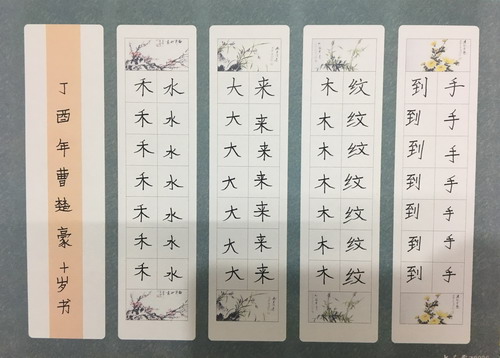 手手手手手手手
到到到到到到到
纹纹纹纹纹纹纹
木木木木木木木
来来来来来来来
大大大大大大大
水水水水水水水
禾禾禾禾禾禾禾
丁酉年曹楚豪十岁书